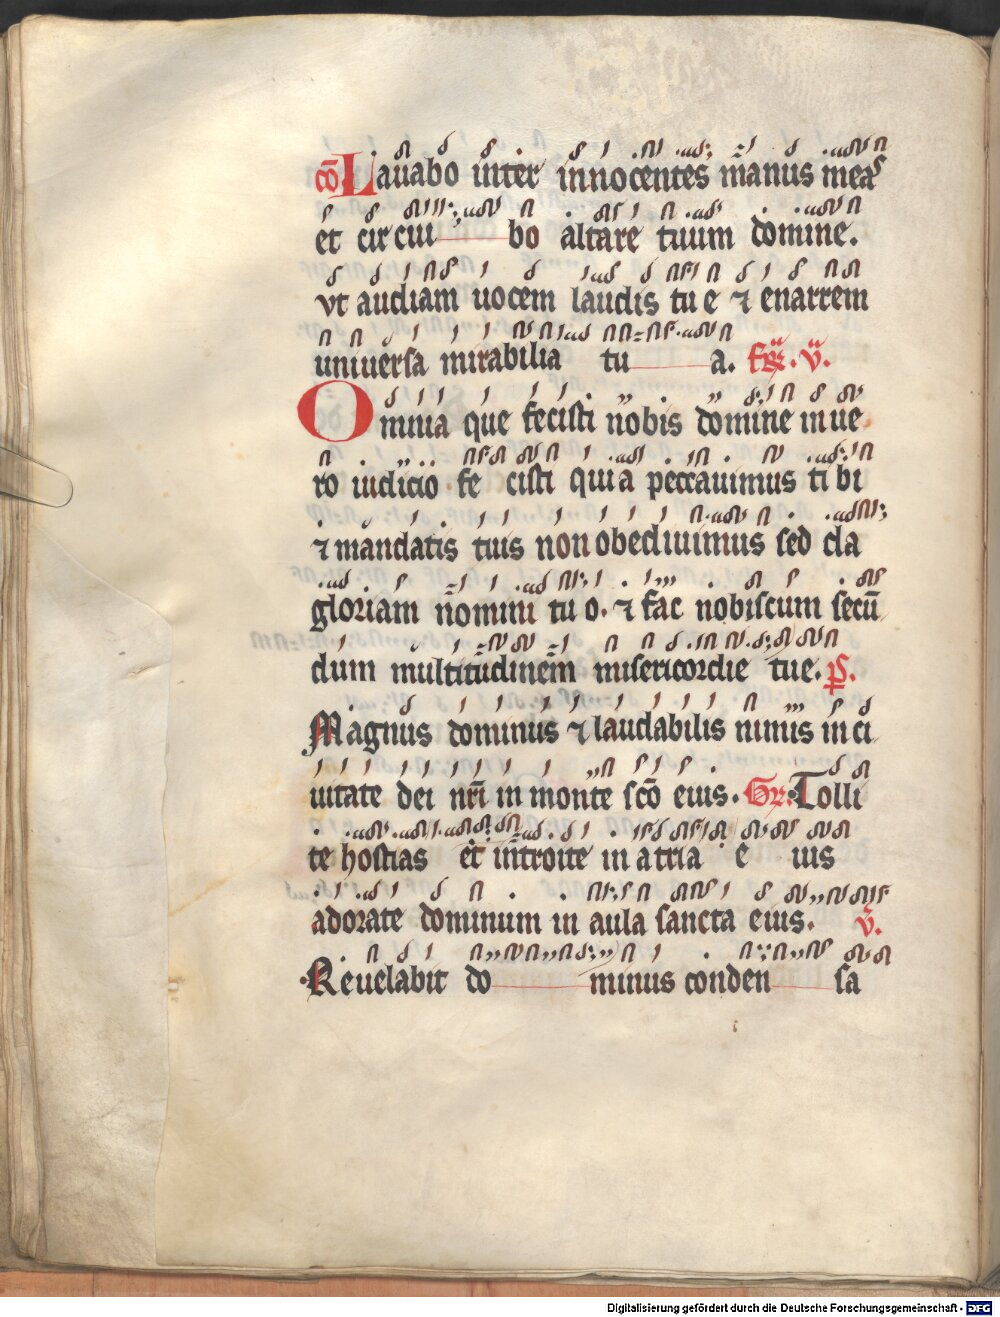 cō Lauabo inter innocentes manus meas
et circui bo altare tuum domine.
vt audiam uocem laudis tu e ⁊ enarrem
uniuersa mirabilia tu a. v̈.
Omnia que fecisti nobis domine in ue
ro iudicio fe cisti quia peccauimus ti bi
⁊ mandatis tuis non obediuimus sed da
gloriam nomini tu o. ⁊ fac nobiscum secū
dum multitudinem misericordie tue. ps.
Magnus dominus ⁊ laudabilis nimis in ci
uitate dei nr̄i in monte scō eius. Gr. Tolli
te hostias et introite in a tria e ius
adorate dominum in aula sancta eius. v̄.
Reuelabit do minus conden sa
Digitalisierung gefördert durch die Deutsche Forschungsgemeinschaft - DFG